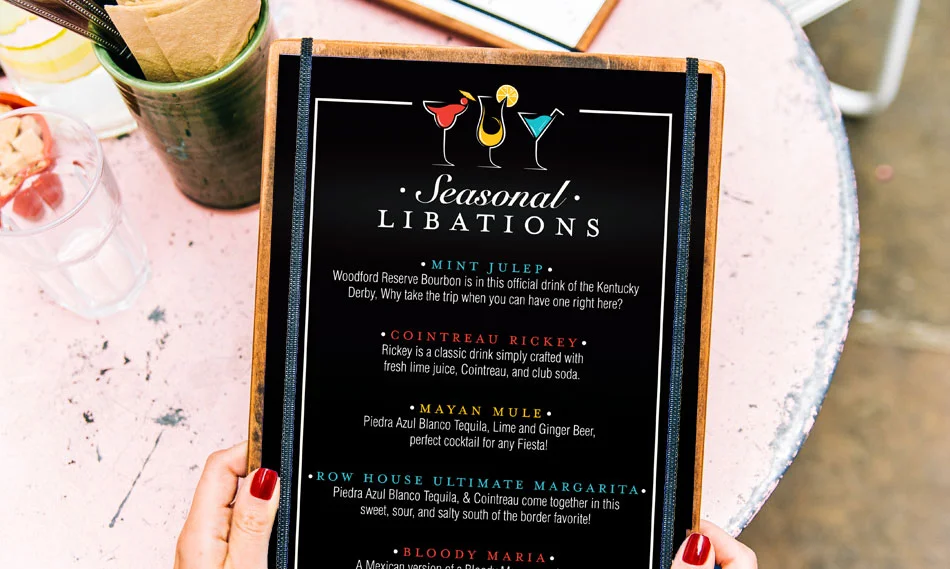 Seasonal
LIBATIONS
• MINT JULEP •
Woodford Reserve Bourbon is in this official drink of the Kentucky
Derby, Why take the trip when you can have one right here?
• COINTREAU RICKEY •
Rickey is a classic drink simply crafted with
fresh lime juice, Cointreau, and club soda.
• MAYAN MULE •
Piedra Azul Blanco Tequila, Lime and Ginger Beer,
perfect cocktail for any Fiesta!
• ROW HOUSE ULTIMATE MARGARITA •
Piedra Azul Blanco Tequila, & Cointreau come together in this
sweet, sour, and salty south of the border favorite!
• BLOODY MARIA •
A Mexican version of a Bloody